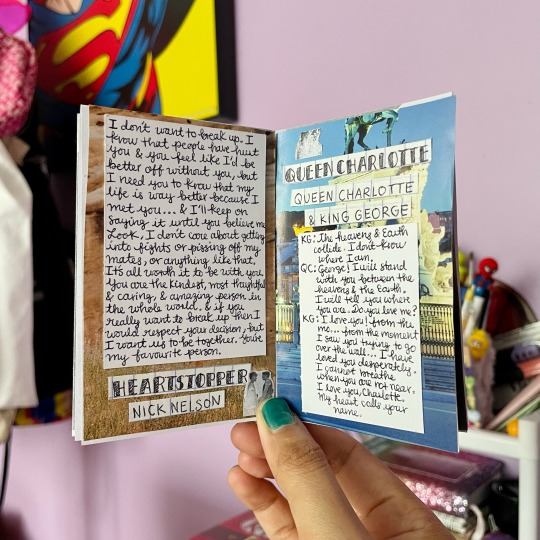 I don't want to break up. I
know that people have hurt
you & you feel like I'd be
better off without you, but
I need you to know that my
life is way better because I
met you... & I'll keep on
saying it until you believe me.
Look, I don't care about getting
into fights or pissing off my
mates, or anything like that.
It's all worth it to be with you.
You are the kindest, most thoughtful
& caring, & amazing person in
the whole world. & if you
really want to break up then I
would respect your decision, but
I want us to be together. You're
my favourite person.
HEARTSTOPPER
NICK NELSON
QUEEN CHARLOTTE
QUEEN CHARLOTTE
& KING GEORGE
KG: The heavens & Earth
collide. I don't know
where I am.
QC: George! I will stand
with you between the
heavens & the Earth.
I will tell you where
you are. Do you love me?
KG: I love you! from the
me... from the moment
I saw you trying to go
over the wall... I have
loved you desperately.
I cannot breathe
when you are not near.
I love you, Charlotte.
My heart calls your
name.